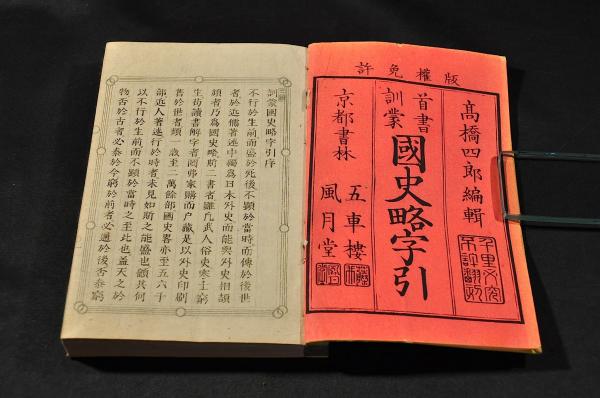 版權免許
高橋四郎編輯
千里必究
不許翻刻
首書
訓蒙
國史略字引
京都書林
五車樓
風月堂
訓蒙國史略字引序
不行於生前而盛於死後不顯於當時而傳於後世
者於近儒著述中獨爲日本外史而能與外史相頡
頏者乃爲國史略前二書者雖凡武人俗史寒士窮
生苟讀書解字者罔弗家賜而户藏是以外史印刷
舊於世者頗一歲至二萬餘部國史略亦至五六千
部近人著述行於時者未見如斯之能盛也顧其何
以不行於生前而不顯於當時之至此也蓋天之於
物吝於古者必泰於今窮於前者必通於後吝泰窮